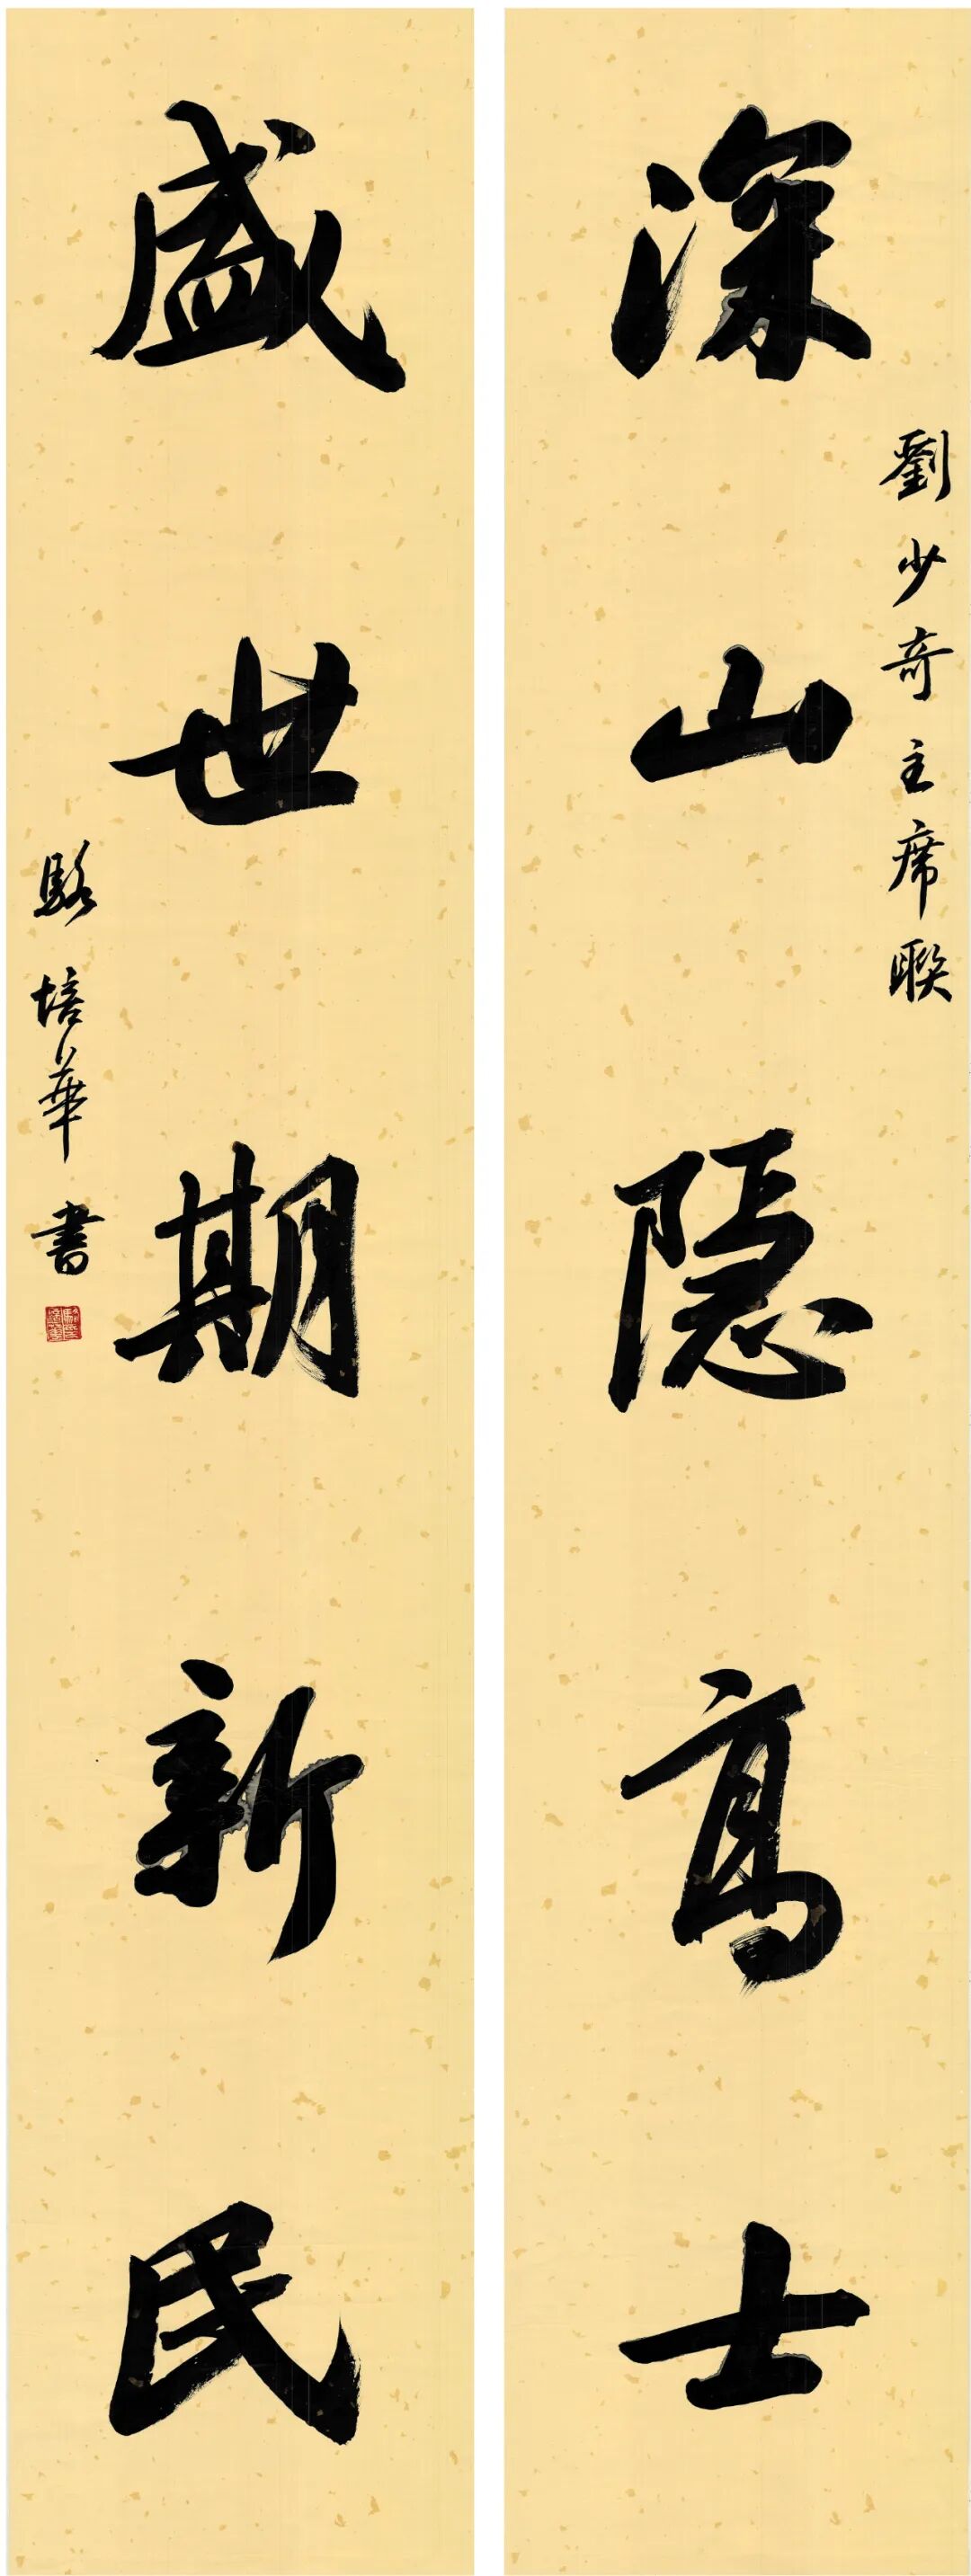 劉少奇主席聯
深山隱高士
盛世期新民
駱培華書